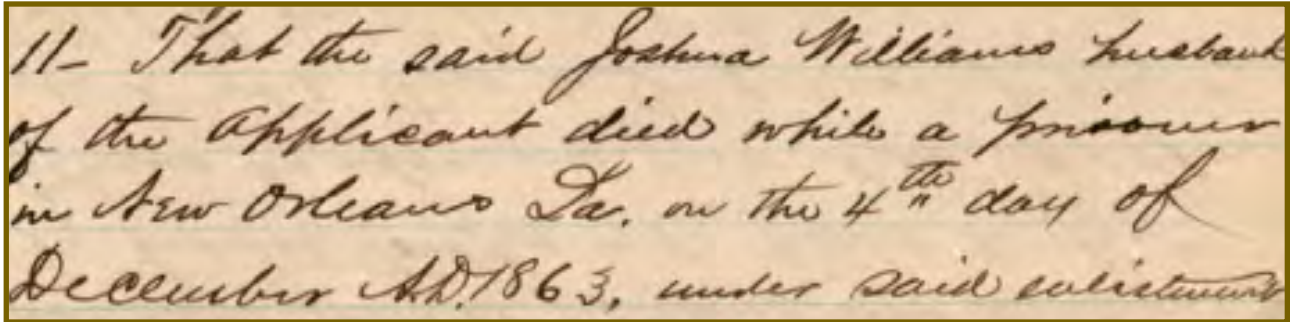 11- That the said Joshua Williams husband
of the Applicant died while a prisoner
in New Orleans La. on the 4th day of
December A.D. 1863, under said enlistment